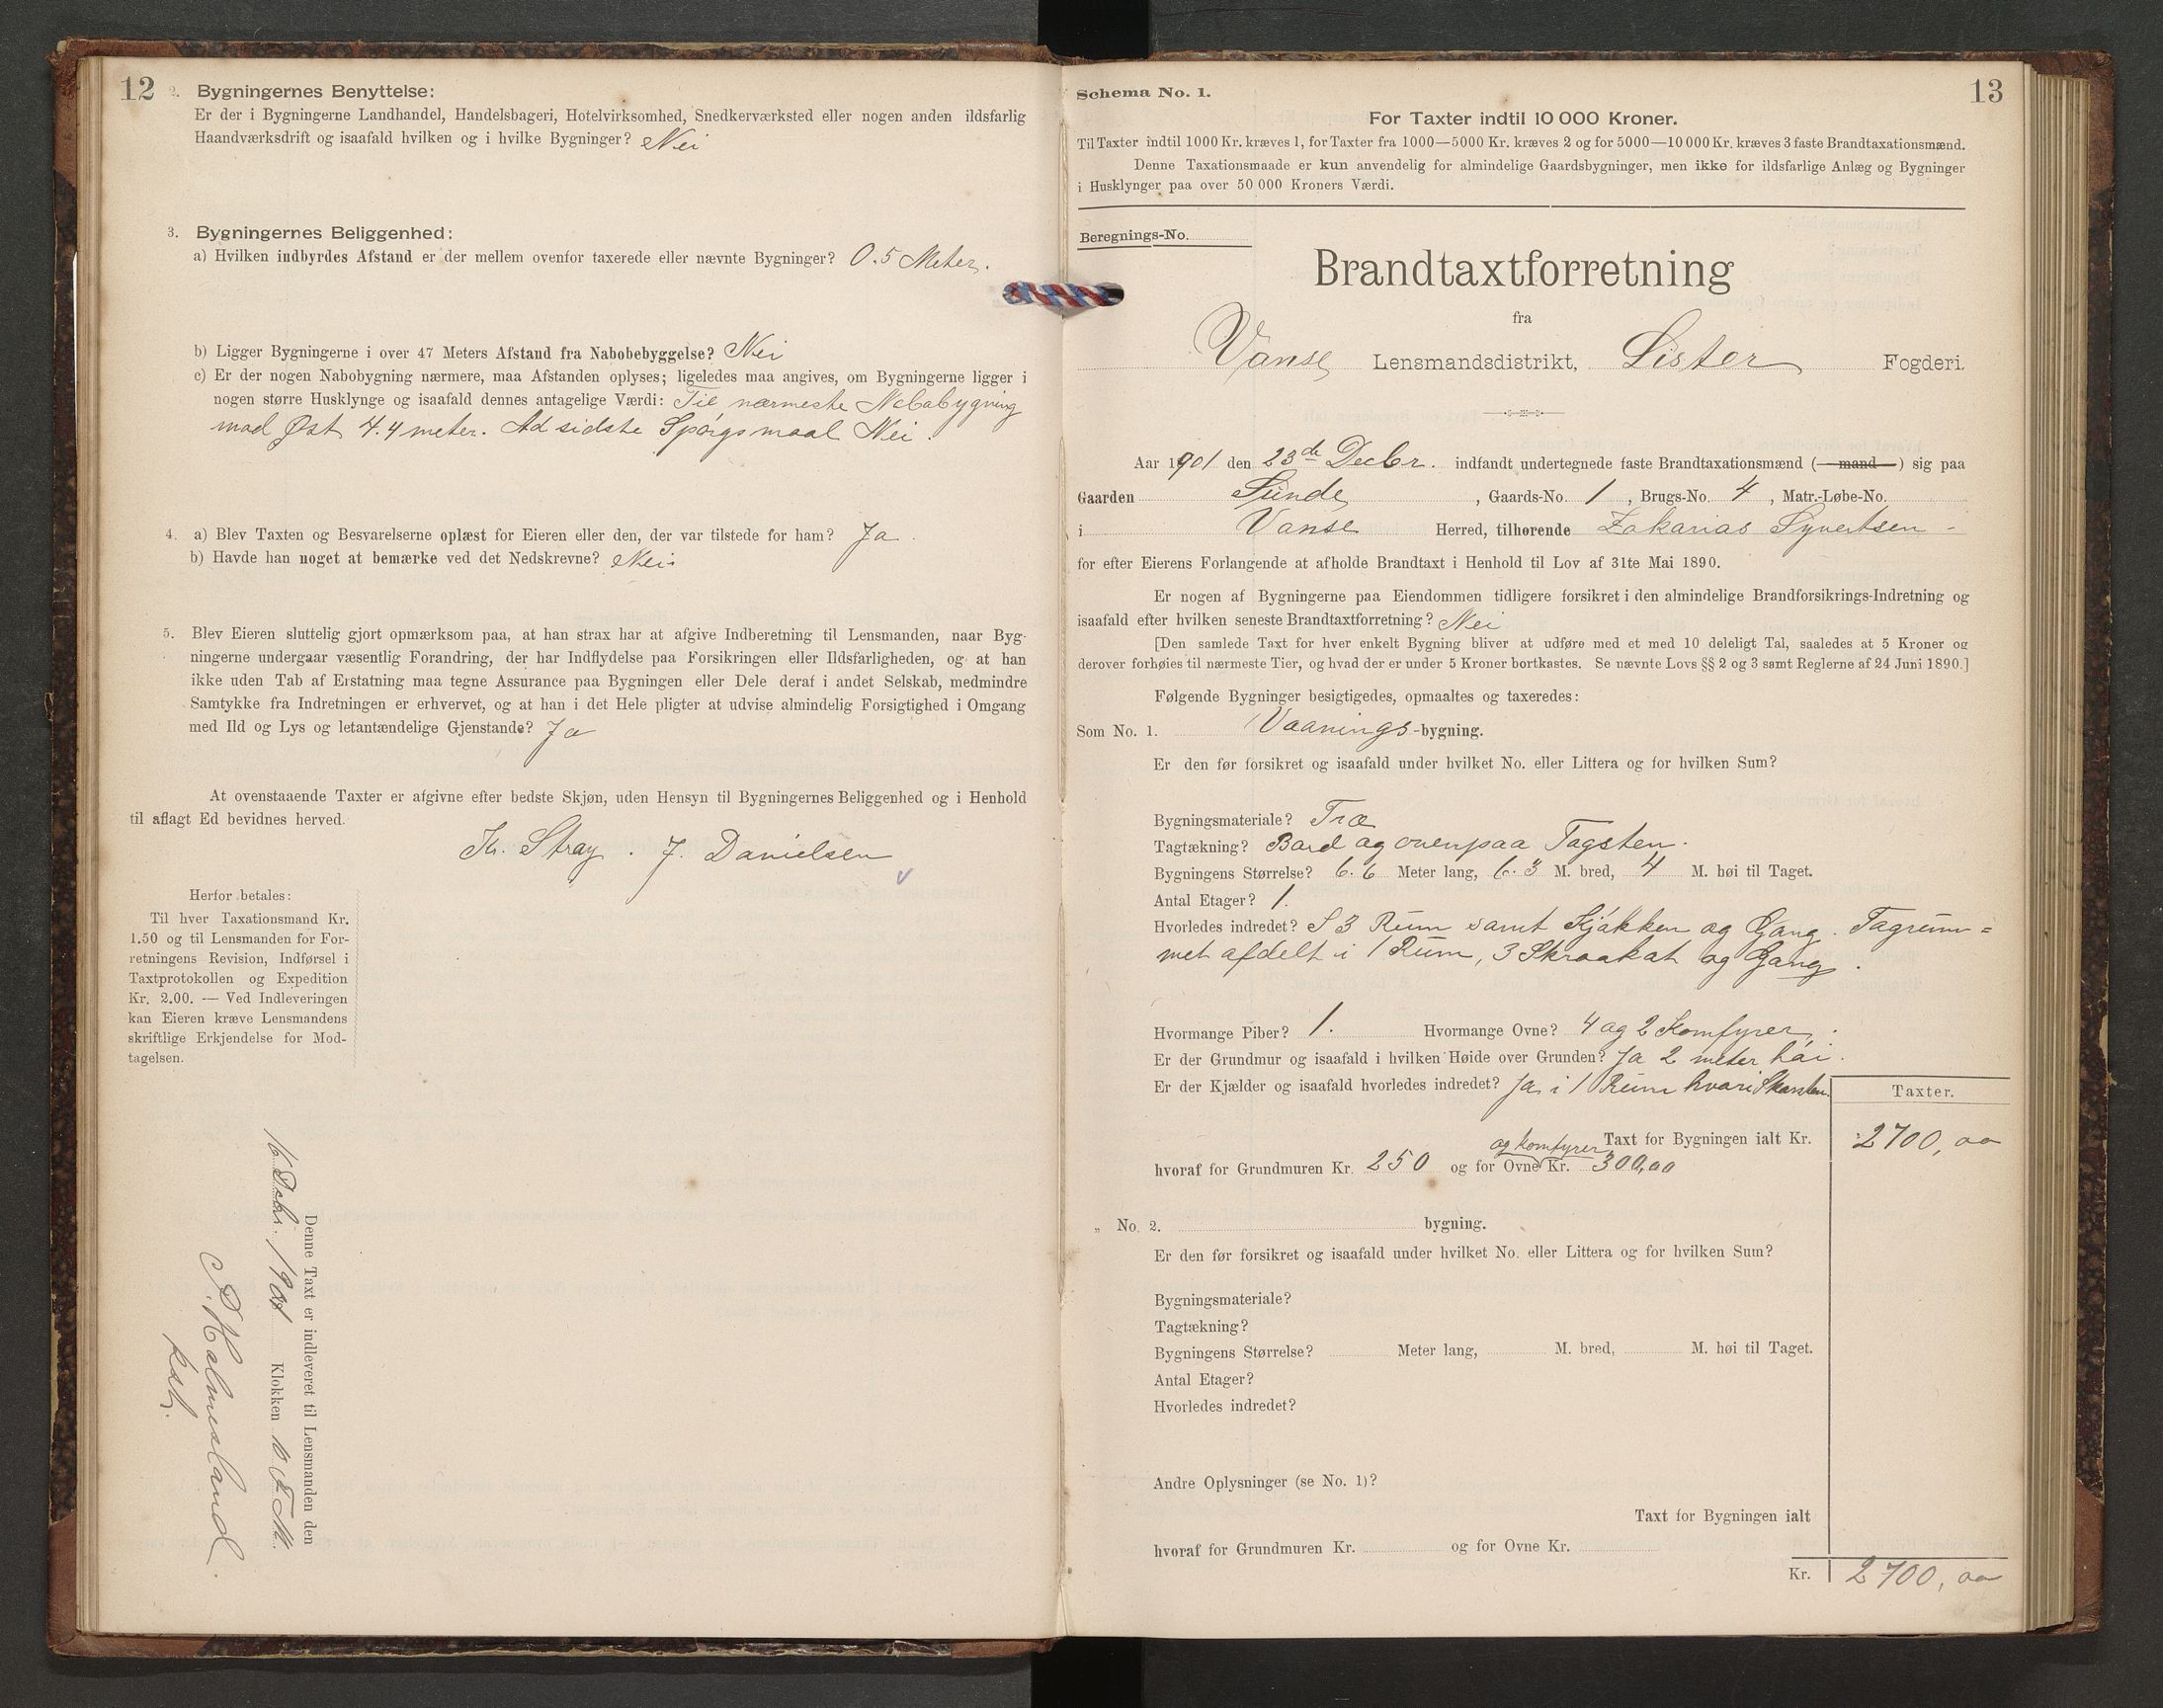 12
2. Bygningernes Benyttelse:
Er der i Bygningerne Landhandel, Handelsbageri, Hotelvirksomhed, Snedkerværksted eller nogen anden ildsfarlig
Haandværksdrift og isaafald hvilken og i hvilke Bygninger? Nei
3. Bygningernes Beliggenhed:
a) Hvilken indbyrdes Afstand er der mellem ovenfor taxerede eller nævnte Bygninger? 0.5 Meter.
b) Ligger Bygningerne i over 47 Meters Afstand fra Nabobebyggelse? Nei
c) Er der nogen Nabobygning nærmere, maa Afstanden oplyses; ligeledes maa angives, om Bygningerne ligger i
nogen større Husklynge og isaafald dennes antagelige Værdi: Til nærmeste Nabobygning
mod Øst 4.4 meter. Ad sidste Spørgsmaal Nei.
4. a) Blev Taxten og Besvarelserne oplæst for Eieren eller den, der var tilstede for ham? Ja.
b) Havde han noget at bemærke ved det Nedskrevne? Nei
5. Blev Eieren sluttelig gjort opmærksom paa, at han strax har at afgive Indberetning til Lensmanden, naar Byg-
ningerne undergaar væsentlig Forandring, der har Indflydelse paa Forsikringen eller Ildsfarligheden, og at han
ikke uden Tab af Erstatning maa tegne Assurance paa Bygningen eller Dele deraf i andet Selskab, medmindre
Samtykke fra Indretningen er erhvervet, og at han i det Hele pligter at udvise almindelig Forsigtighed i Omgang
med Ild og Lys og letantændelige Gjenstande? Ja
At ovenstaaende Taxter er afgivne efter bedste Skjøn, uden Hensyn til Bygningernes Beliggenhed og i Henhold
til aflagt Ed bevidnes herved.
Kr. Stray. J. Danielsen
Herfor betales:
Til hver Taxationsmand Kr.
1.50 og til Lensmanden for For-
retningens Revision, Indførsel i
Taxtprotokollen og Expedition
Kr. 2.00. — Ved Indleveringen
kan Eieren kræve Lensmandens
skriftlige Erkjendelse for Mod-
tagelsen.
Denne Taxt er indleveret til Lensmanden den
16 Debr. 1901 Klokken 10 F.M.
Halmesland
kst.
13
Schema No. 1.
For Taxter indtil 10 000 Kroner.
Til Taxter indtil 1000 Kr. kræves 1, for Taxter fra 1000—5000 Kr. kræves 2 og for 5000—10 000 Kr. kræves 3 faste Brandtaxationsmænd.
Denne Taxationsmaade er kun anvendelig for almindelige Gaardsbygninger, men ikke for ildsfarlige Anlæg og Bygninger
i Husklynger paa over 50 000 Kroners Værdi.
Beregnings-No.
Brandtaxtforretning
fra
Vanse Lensmandsdistrikt, Lister Fogderi.
Aar 1901 den 23de Decbr. indfandt undertegnede faste Brandtaxationsmænd (mand) sig paa
Gaarden Sunde, Gaards-No. 1, Brugs-No. 4, Matr.-Løbe-No.
i Vanse Herred, tilhørende Zakarias Syvertsen -
for efter Eierens Forlangende at afholde Brandtaxt i Henhold til Lov af 31te Mai 1890.
Er nogen af Bygningerne paa Eiendommen tidligere forsikret i den almindelige Brandforsikrings-Indretning og
isaafald efter hvilken seneste Brandtaxtforretning? Nei
[Den samlede Taxt for hver enkelt Bygning bliver at udføre med et med 10 deleligt Tal, saaledes at 5 Kroner og
derover forhøies til nærmeste Tier, og hvad der er under 5 Kroner bortkastes. Se nævnte Lovs §§ 2 og 3 samt Reglerne af 24 Juni 1890.]
Følgende Bygninger besigtigedes, opmaaltes og taxeredes:
Som No. 1. Vaanings-bygning.
Er den før forsikret og isaafald under hvilket No. eller Littera og for hvilken Sum?
Bygningsmateriale? Træ
Tagtækning? Bord og ovenpaa Tagsten.
Bygningens Størrelse? 6.6 Meter lang, 6.3 M. bred, 4 M. høi til Taget.
Antal Etager? 1.
Hvorledes indredet? I 3 Rum samt Kjøkken og Gang. Tagrum=
met afdelt i 1 Rum, 3 Skraakat og Gang.
Hvormange Piber? 1. Hvormange Ovne? 4 og 2 Komfyrer.
Er der Grundmur og isaafald i hvilken Høide over Grunden? Ja 2 meter høi.
Er der Kjælder og isaafald hvorledes indredet? Ja i 1 Rum hvori Skorsten.
Taxter.
og komfyrer Taxt for Bygningen ialt Kr. 2700,00
hvoraf for Grundmuren Kr. 250 og for Ovne Kr. 300,00
„ No. 2. bygning.
Er den før forsikret og isaafald under hvilket No. eller Littera og for hvilken Sum?
Bygningsmateriale?
Tagtækning?
Bygningens Størrelse? Meter lang, M. bred, M. høi til Taget.
Antal Etager?
Hvorledes indredet?
Andre Oplysninger (se No. 1)?
Taxt for Bygningen ialt
hvoraf for Grundmuren Kr. og for Ovne Kr.
Kr. 2700,00